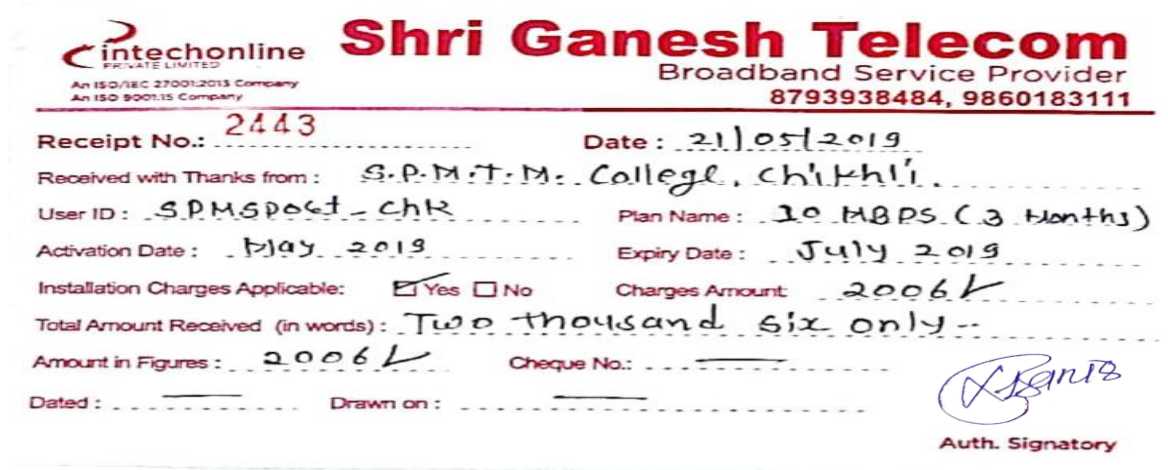 intechonline
PRIVATE LIMITED
An ISO/IEC 27001:2013 Company
An ISO 9001:15 Company
Shri Ganesh Telecom
Broadband Service Provider
8793938484, 9860183111
Receipt No.: 2443 Date : 21/05/2019
Received with Thanks from : S.P.M.T.M. College, Chikhli.
User ID : Plan Name : 10 MBPS (3 Months)
Activation Date : May 2019 Expiry Date : July 2019
Installation Charges Applicable: Yes No Charges Amount 2006/-
Total Amount Received (in words) : Two thousand six only --
Amount in Figures : 2006/- Cheque No.: —
Dated : — Drawn on : —
Auth. Signatory